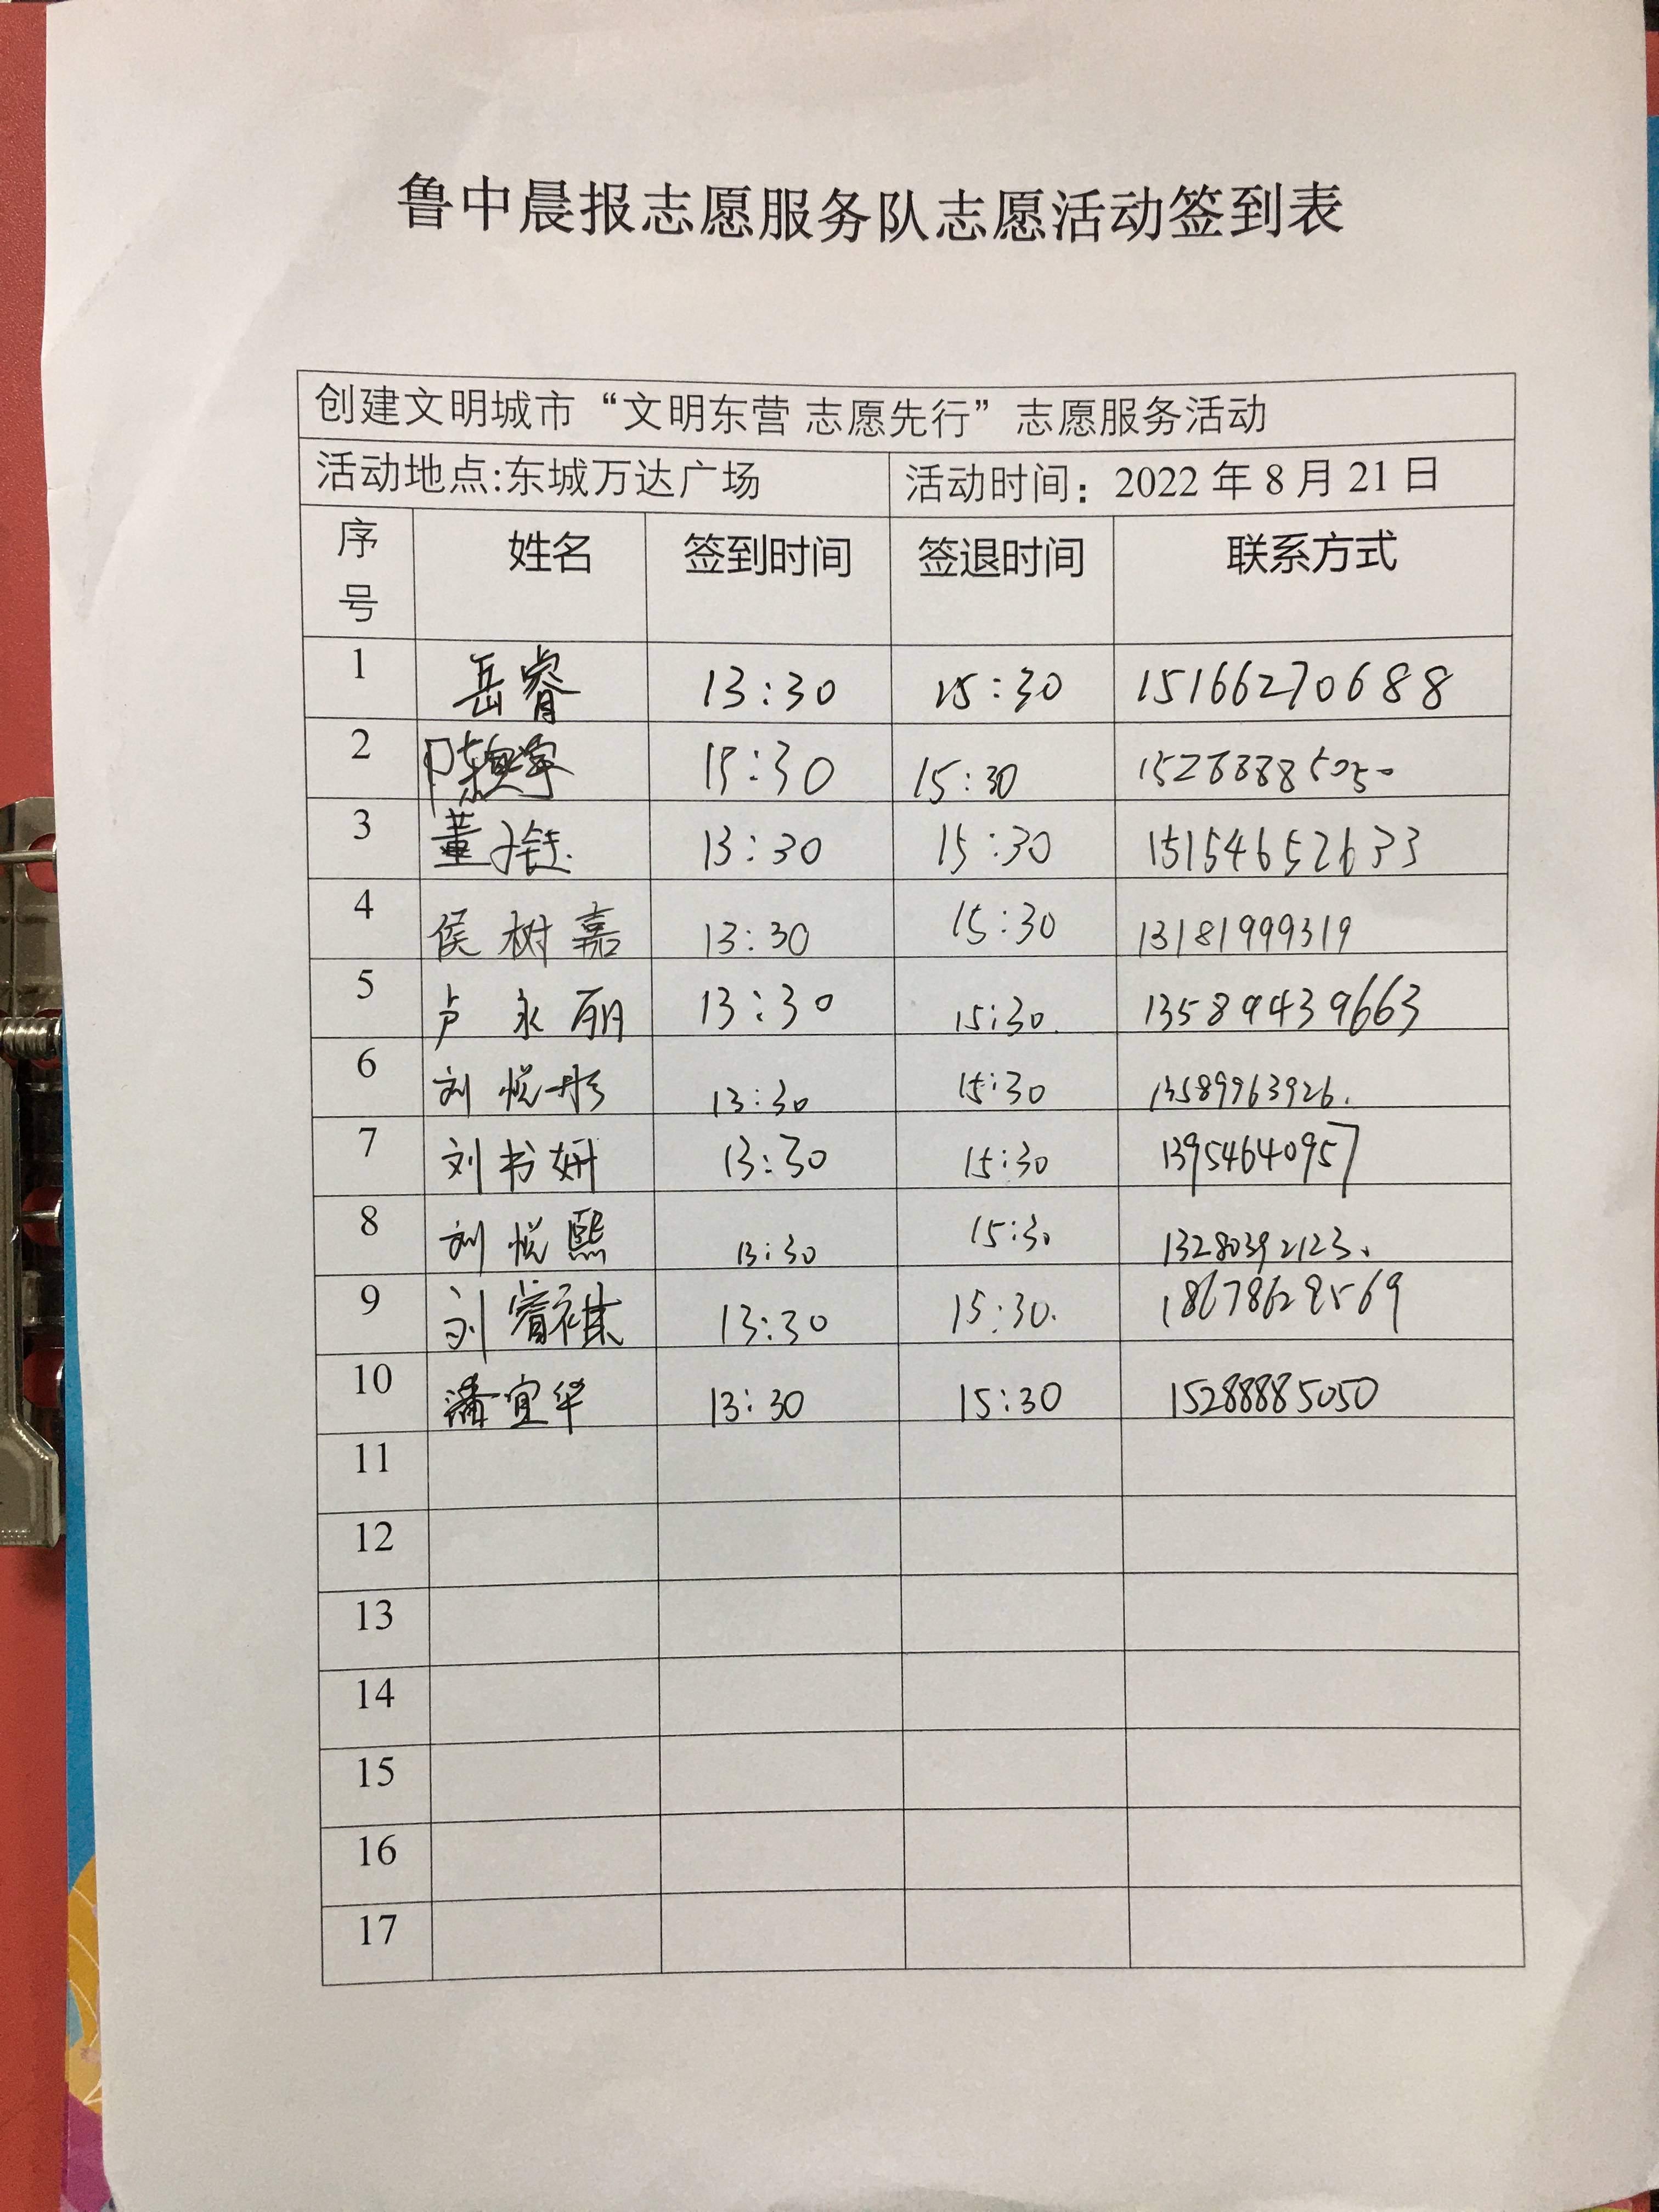 鲁中晨报志愿服务队志愿活动签到表
创建文明城市“文明东营 志愿先行”志愿服务活动
活动地点:东城万达广场 活动时间：2022 年 8 月 21 日
序号 姓名 签到时间 签退时间 联系方式
1 岳睿 13:30 15:30 15166270688
2 陈 15:30 15:30
3 董子钰 13:30 15:30 15154652633
4 侯树嘉 13:30 15:30 13181999319
5 卢永丽 13:30 15:30 13589439663
6 刘悦彤 13:30 15:30 13589963926.
7 刘书妍 13:30 15:30 13954640957
8 刘悦熙 13:30 15:30 13280392123.
9 刘睿祺 13:30 15:30. 18678628569
10 潘宜华 13:30 15:30 15288885050
11
12
13
14
15
16
17